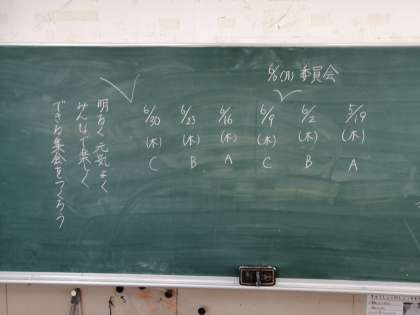 6/6(月)委員会
5/19(木)A
6/2(木)B
6/9(木)C
6/16(木)A
6/23(木)B
6/30(木)C
明るく元気よく
みんなで楽しく
できる集会をつくろう